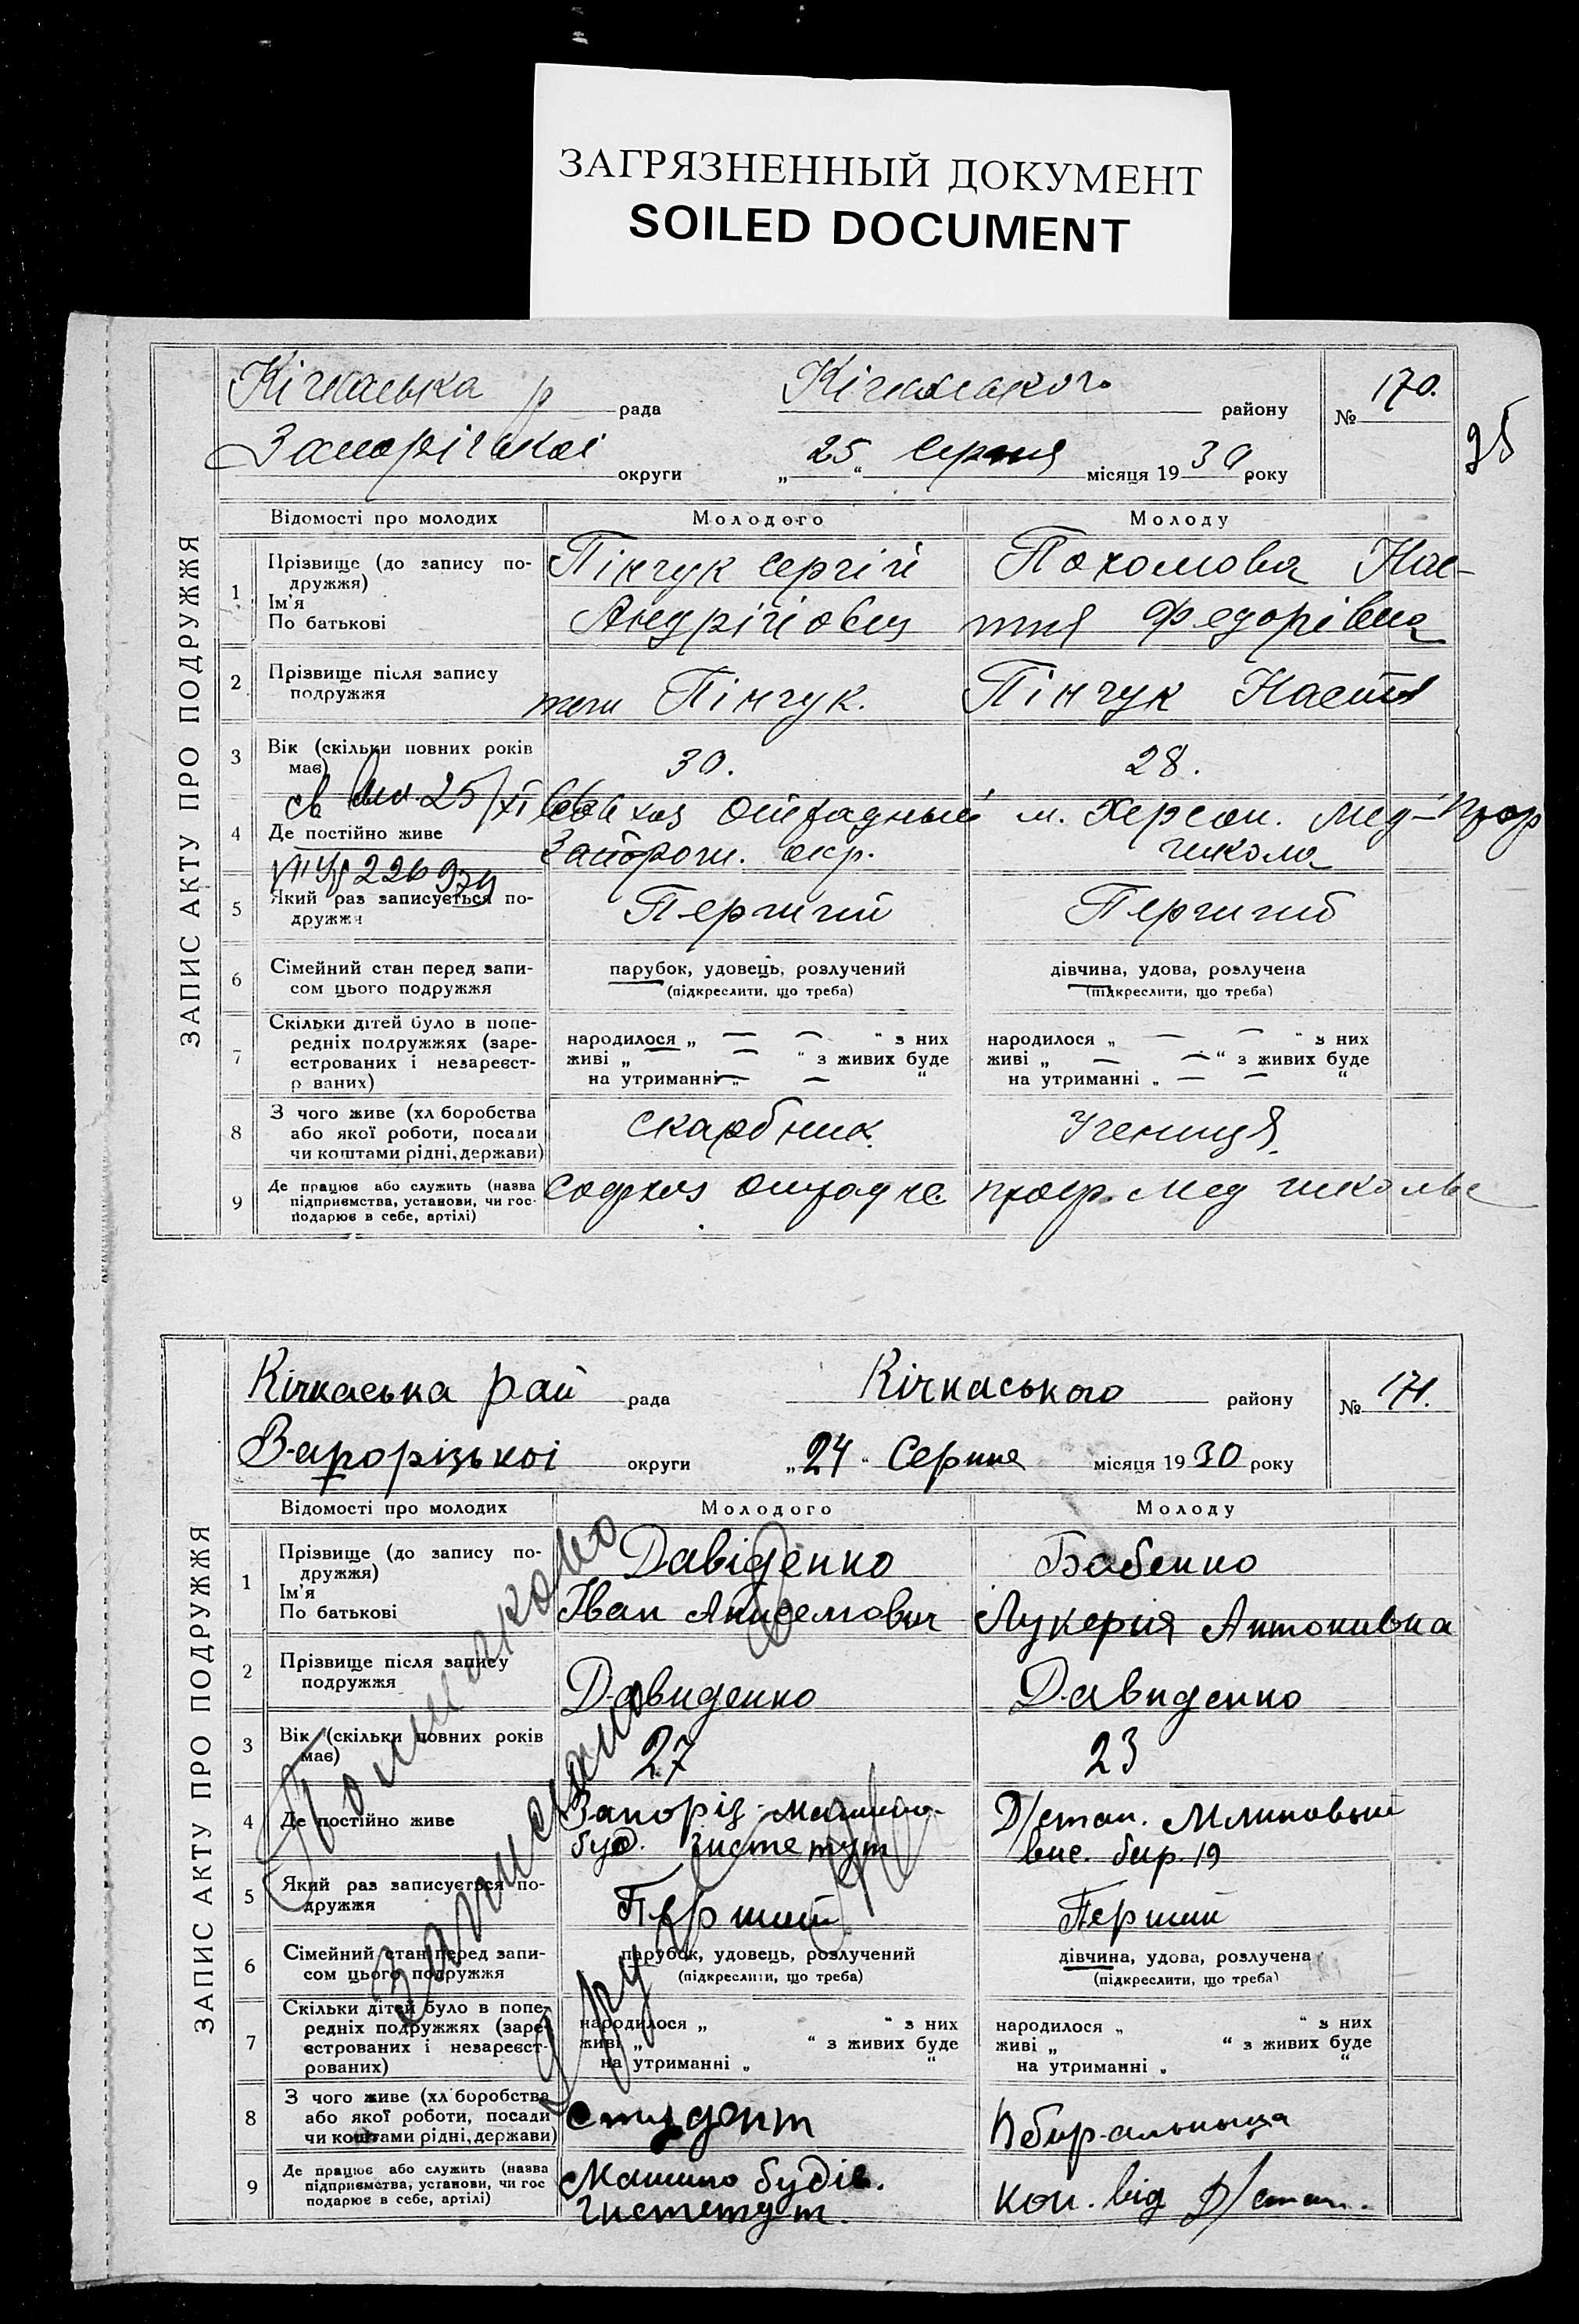 ЗАГРЯЗНЕННЫЙ ДОКУМЕНТ
SOILED DOCUMENT
ЗАПИС АКТУ ПРО ПОДРУЖЖЯ
Кічкаська р рада Кічкаського району № 170.
95
Запорізької округи „25“ серпня місяця 1930 року
Відомості про молодих Молодого Молоду
1 Прізвище (до запису по-
дружжя)
Ім'я
По батькові
Пінчук Сергій
Андрійович
Похомова Нас-
тия Федорівна
2 Прізвище після запису
подружжя
Пінчук.
Пінчук Настя
3 Вік (скільки повних років
має)
30.
28.
4 Де постійно живе
Отградный
Запорож. окр.
м. Херсон. Мед-проф
школа
5 Який раз записується по-
дружжя
Перший
Перший
6 Сімейний стан перед запи-
сом цього подружжя
парубок, удовець, розлучений
(підкреслити, що треба)
дівчина, удова, розлучена
(підкреслити, що треба)
7 Скільки дітей було в попе-
редніх подружжях (заре-
єстрованих і незареєст-
р ваних)
народилося „ — — “ з них
живі „ — “ з живих буде
на утриманні „ — “
народилося „ — — “ з них
живі „ — — “ з живих буде
на утриманні „ — — “
8 З чого живе (хл боробства
або якої роботи, посади
чи коштами рідні, держави)
скарбник.
Учениця.
9 Де працює або служить (назва
підприємства, установи, чи гос-
подарює в себе, артілі)
проф. мед школы
ЗАПИС АКТУ ПРО ПОДРУЖЖЯ
Кічкаська рай рада Кічкаського району № 171.
Запорізької округи „24“ Серпня місяця 1930 року
Відомості про молодих Молодого Молоду
1 Прізвище (до запису по-
дружжя)
Ім'я
По батькові
Давіденко
Іван Анисемович
Бабенко
Лукерия Антонивна
2 Прізвище після запису
подружжя
Давиденко
Давиденко
3 Вік (скільки повних років
має)
27
23
4 Де постійно живе
Запоріз. машино-
буд. інстетут
Д/стан. Млиновый
вис. бар. 19
5 Який раз записується по-
дружжя
Перший
Перший
6 Сімейний стан перед запи-
сом цього подружжя
парубок, удовець, розлучений
(підкреслити, що треба)
дівчина, удова, розлучена
(підкреслити, що треба)
7 Скільки дітей було в попе-
редніх подружжях (заре-
єстрованих і незареєст-
рованих)
народилося „ “ з них
живі „ “ з живих буде
на утриманні „ “
народилося „ “ з них
живі „ “ з живих буде
на утриманні „ “
8 З чого живе (хл боробства
або якої роботи, посади
чи коштами рідні, держави)
студент
9 Де працює або служить (назва
підприємства, установи, чи гос
подарює в себе, артілі)
Машино будів.
інстетут.
кон. від Д/стан.
Помилково
записано